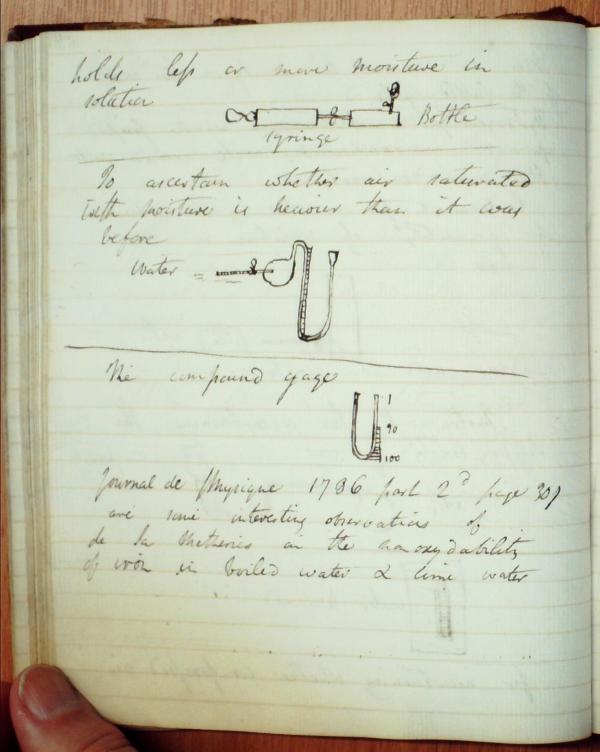 holds less or more moisture in
solution
Bottle
Syringe
To ascertain whether air saturated
with moisture is heavier than it was
before
Water
The compound gage
1
90
100
Journal de Physique 1786 part 2d page 301
are some interesting observations of
de la Metherie on the non oxydability
of iron in boiled water & lime water